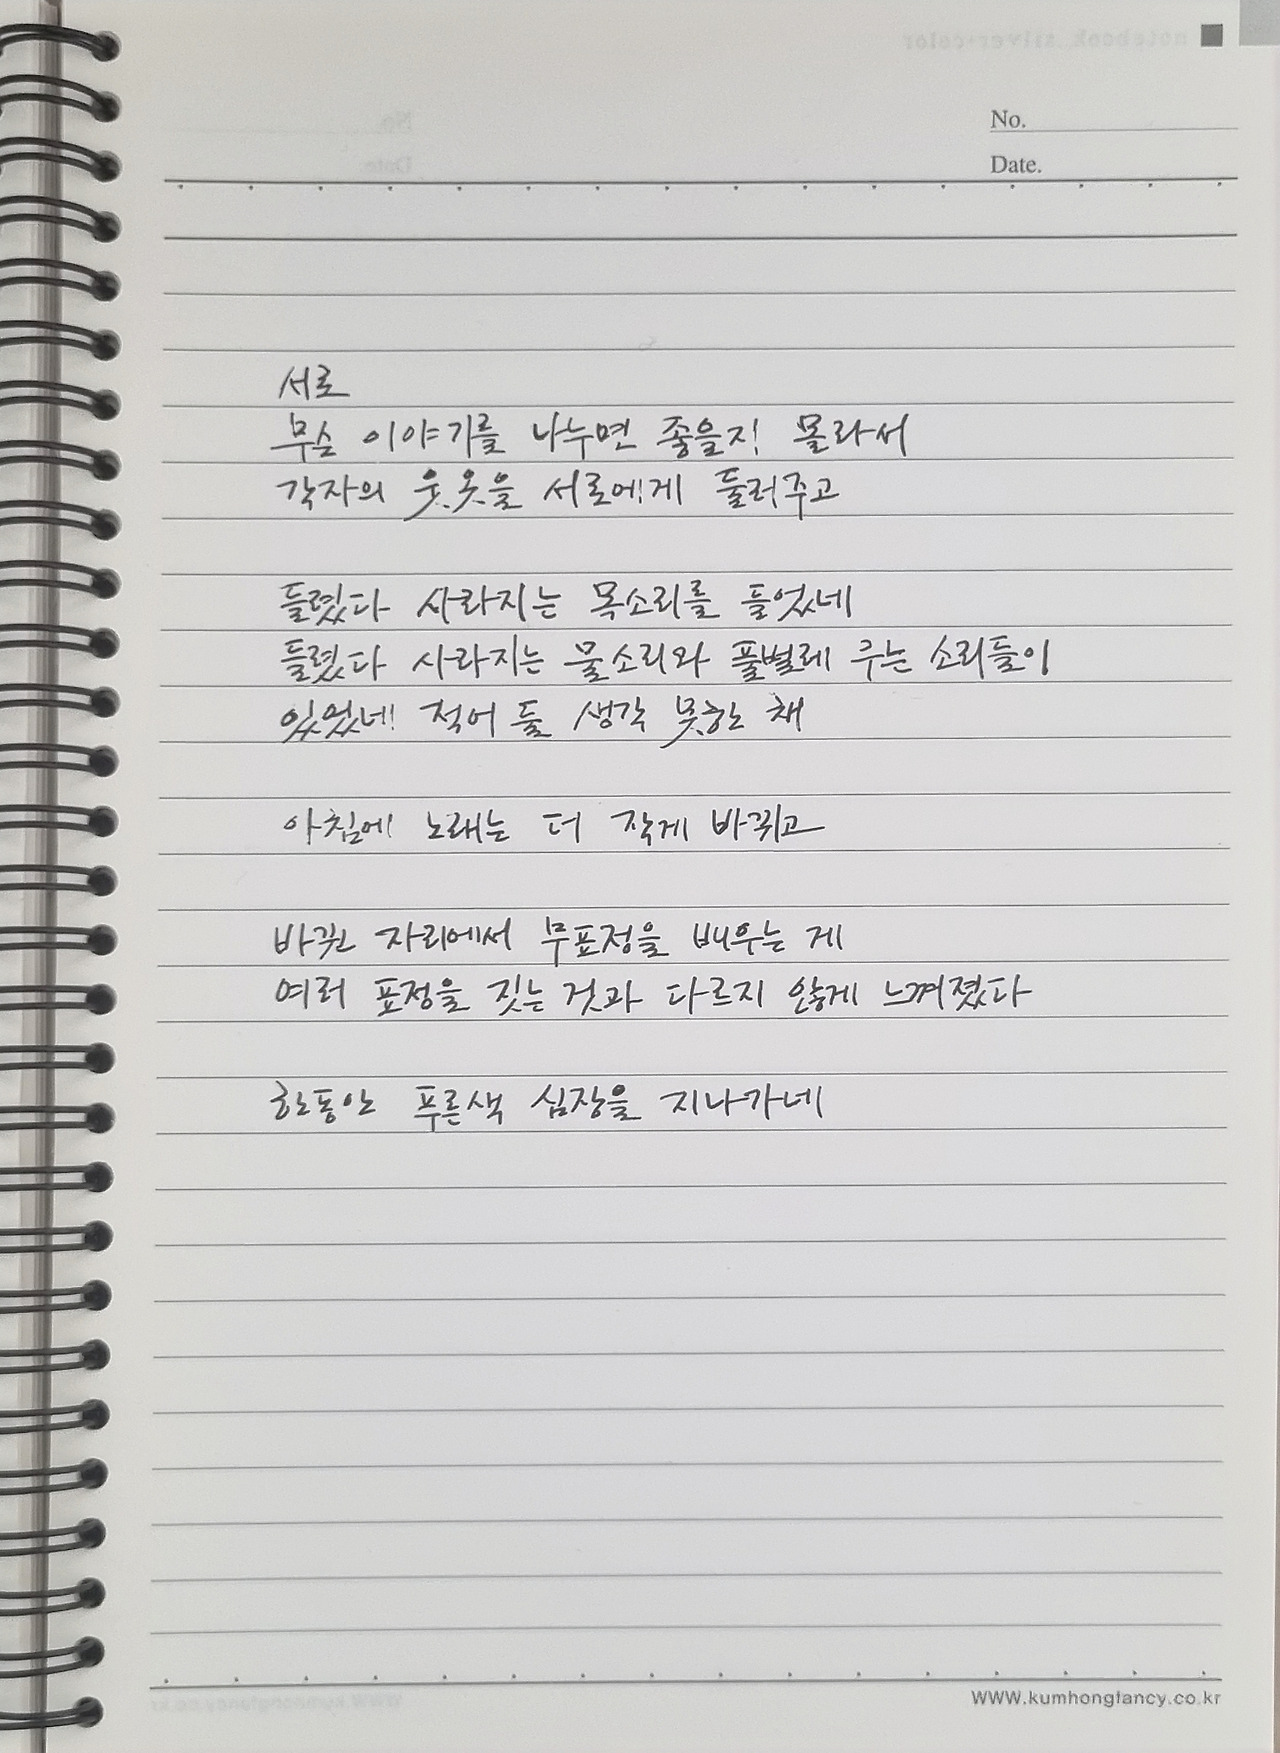 notebook silver+color
No.
Date.
서로
무슨 이야기를 나누면 좋을지 몰라서
각자의 윗옷을 서로에게 둘러주고
들렸다 사라지는 목소리를 들었네
들렸다 사라지는 물소리와 풀벌레 우는 소리들이
있었네 적어 둘 생각 못한 채
아침에 노래는 더 작게 바뀌고
바뀐 자리에서 무표정을 배우는 게
여러 표정을 짓는 것과 다르지 않게 느껴졌다
한동안 푸른색 심장을 지나가네
WWW.kumhongfancy.co.kr